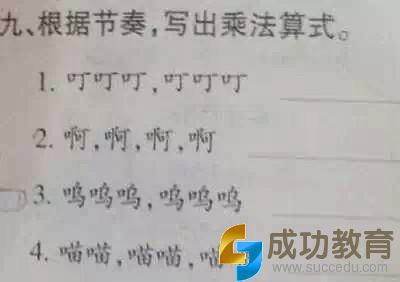 九、根据节奏,写出乘法算式。
1. 叮叮叮,叮叮叮
2. 啊,啊,啊,啊
3. 呜呜呜,呜呜呜
4. 喵喵,喵喵,喵
成功教育
www.succedu.com